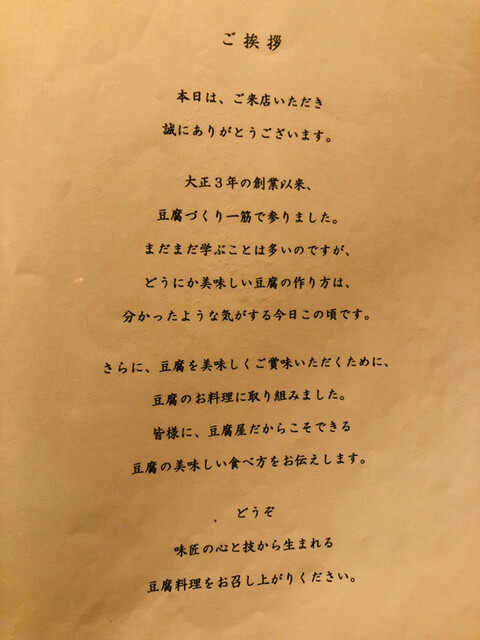 ご挨拶
本日は、ご来店いただき
誠にありがとうございます。
大正３年の創業以来、
豆腐づくり一筋で参りました。
まだまだ学ぶことは多いのですが、
どうにか美味しい豆腐の作り方は、
分かったような気がする今日この頃です。
さらに、豆腐を美味しくご賞味いただくために、
豆腐のお料理に取り組みました。
皆様に、豆腐屋だからこそできる
豆腐の美味しい食べ方をお伝えします。
どうぞ
味匠の心と技から生まれる
豆腐料理をお召し上がりください。